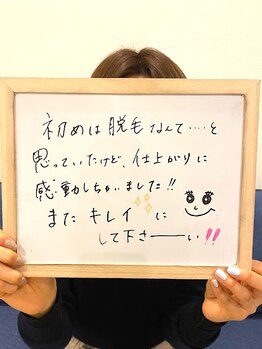 初めは脱毛なんて‥‥と
思っていたけど、仕上がりに
感動しちゃいました!!
また キレイ✨に
して下さーーい!!